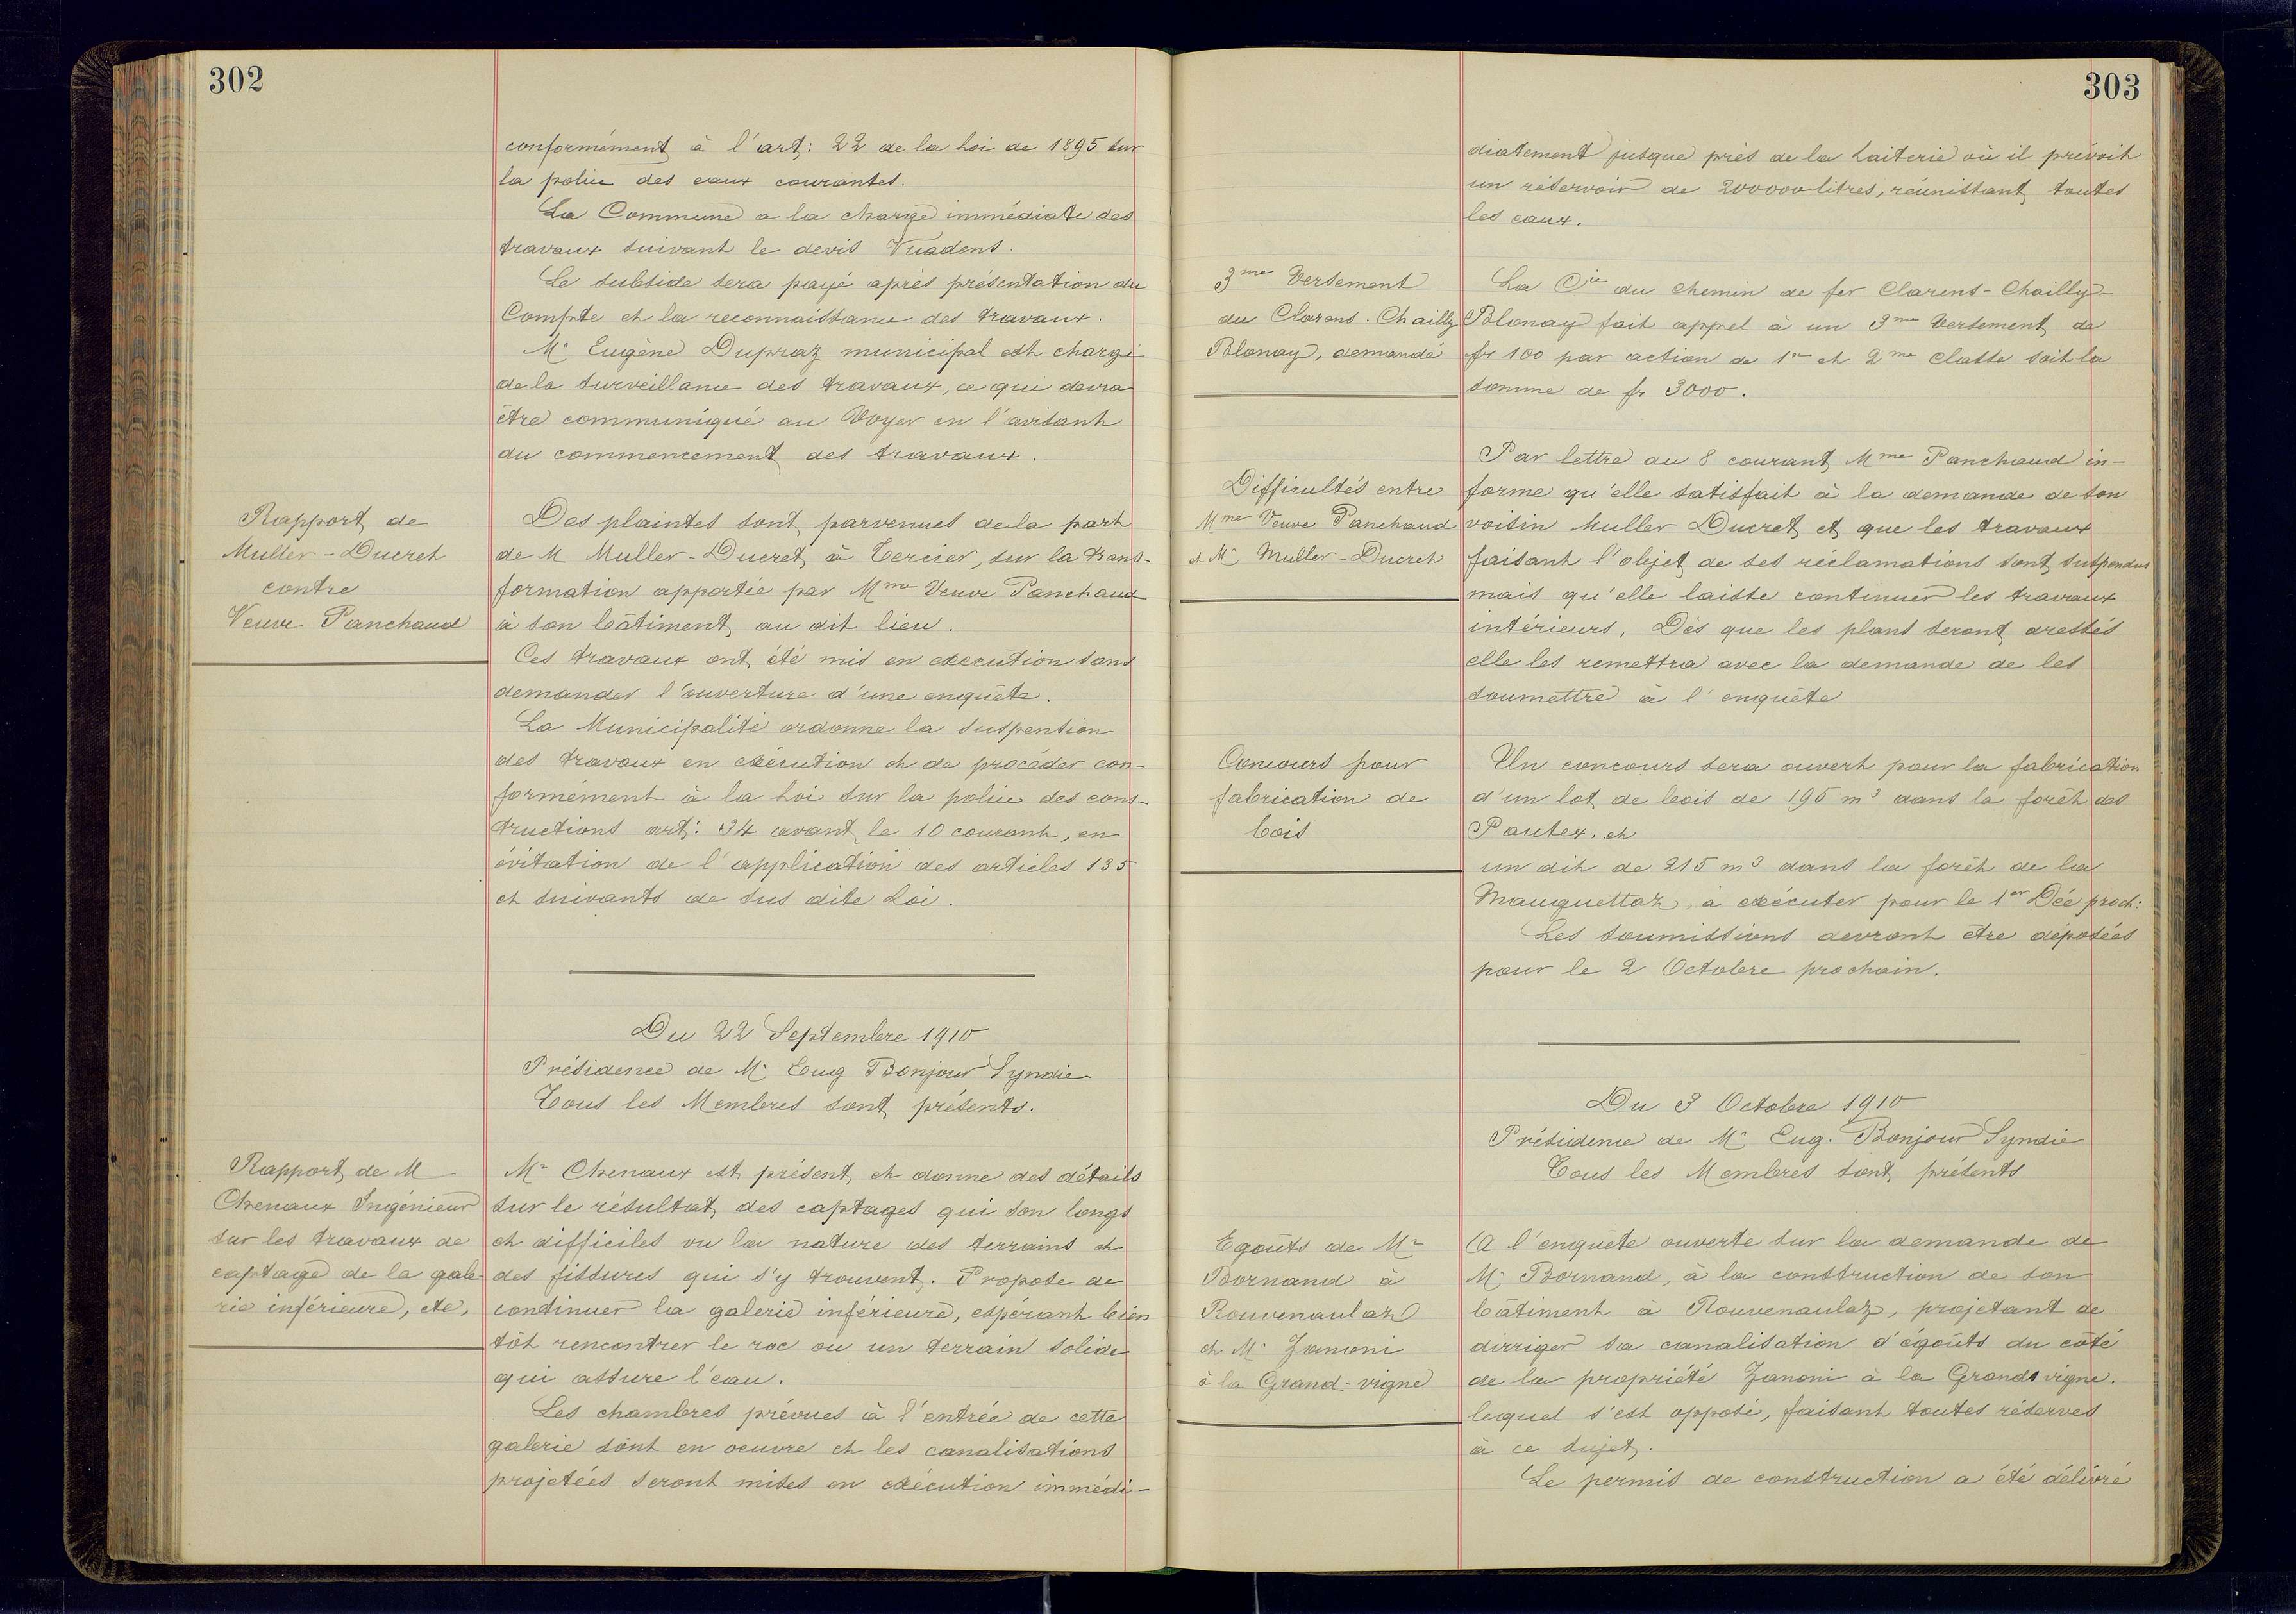 302
conformément à l'art: 22 de la loi de 1895 sur
la police des eaux courantes.
La Commune a la charge immédiate des
travaux suivant le devis Vuadens.
Le subside sera payé après présentation du
Compte et la reconnaissance des travaux.
Mr Eugène Dupraz municipal est chargé
de la surveillance des travaux, ce qui devra
être communiqué au Voyer en l'avisant
du commencement des travaux.
Rapport de
Muller-Ducret
contre
Veuve Panchaud
Des plaintes sont parvenues de la part
de M Muller-Ducret, à Tercier, sur la trans-
formation apportée par Mme Veuve Panchaud
à son bâtiment au dit lieu.
Ces travaux ont été mis en exécution sans
demander l'ouverture d'une enquête.
La Municipalité ordonne la suspention
des travaux en exécution et de procéder con-
formément à la loi sur la police des cons-
tructions art: 34 avant le 10 courant, en
évitation de l'application des articles 135
et suivants de sus dite Loi.
Du 22 Septembre 1910
Présidence de Mr Eug Bonjour Syndic
Tous les Membres sont présents.
Rapport de M
Chenaux Ingénieur
sur les travaux de
captage de la gale
rie inférieure, etc,
Mr Chenaux est présent et donne des détails
sur le résultat des captages qui son longs
et difficiles vu la nature des terrains et
des fissures qui s'y trouvent. Propose de
continuer la galerie inférieure, espérant bien
tôt rencontrer le roc ou un terrain solide
qui assure l'eau.
Les chambres prévues à l'entrée de cette
galerie sont en oeuvre et les canalisations
projetées seront mises en exécution immédi-
303
diatement jusque près de la Laiterie où il prévoit
un réservoir de 200000 litres, réunissant toutes
les eaux.
3me Versement
du Clarens. Chailly
Blonay, demandé
La Cie du Chemin de fer Clarens-Chailly-
Blonay fait appel à un 3me Versement de
fr 100 par action de 1re et 2me Classe soit la
somme de fr 3000.
Difficultés entre
Mme Veuve Panchaud
et Mr Muller-Ducret
Par lettre du 8 courant Mme Panchaud in-
forme qu'elle satisfait à la demande de son
voisin Muller Ducret et que les travaux
faisant l'objet de ses réclamations sont suspendus
mais qu'elle laisse continuer les travaux
intérieurs. Dès que les plans seront dressés
elle les remettra avec la demande de les
soumettre à l'enquête
Concours pour
fabrication de
bois
Un concours sera ouvert pour la fabrication
d'un lot de bois de 195 m3 dans la forêt des
Pautex. et
un dit de 215 m3 dans la forêt de la
Mauguettaz, à exécuter pour le 1er Déc proch:
Les soumissions devront être déposées
pour le 2 Octobre prochain.
Du 3 Octobre 1910
Présidence de Mr Eug. Bonjour Syndic
Tous les Membres sont présents
Egoûts de Mr
Bornand à
Rouvenaulaz
et Mr Zanoni
à la Grand-vigne
A l'enquête ouverte sur la demande de
Mr Bornand, à la construction de son
bâtiment à Rouvenaulaz, projetant de
dirriger sa canalisation d'égoûts du côté
de la propriété Zanoni à la Grande vigne.
lequel s'est opposé, faisant toutes réserves
à ce sujet.
Le permis de construction a été délivré